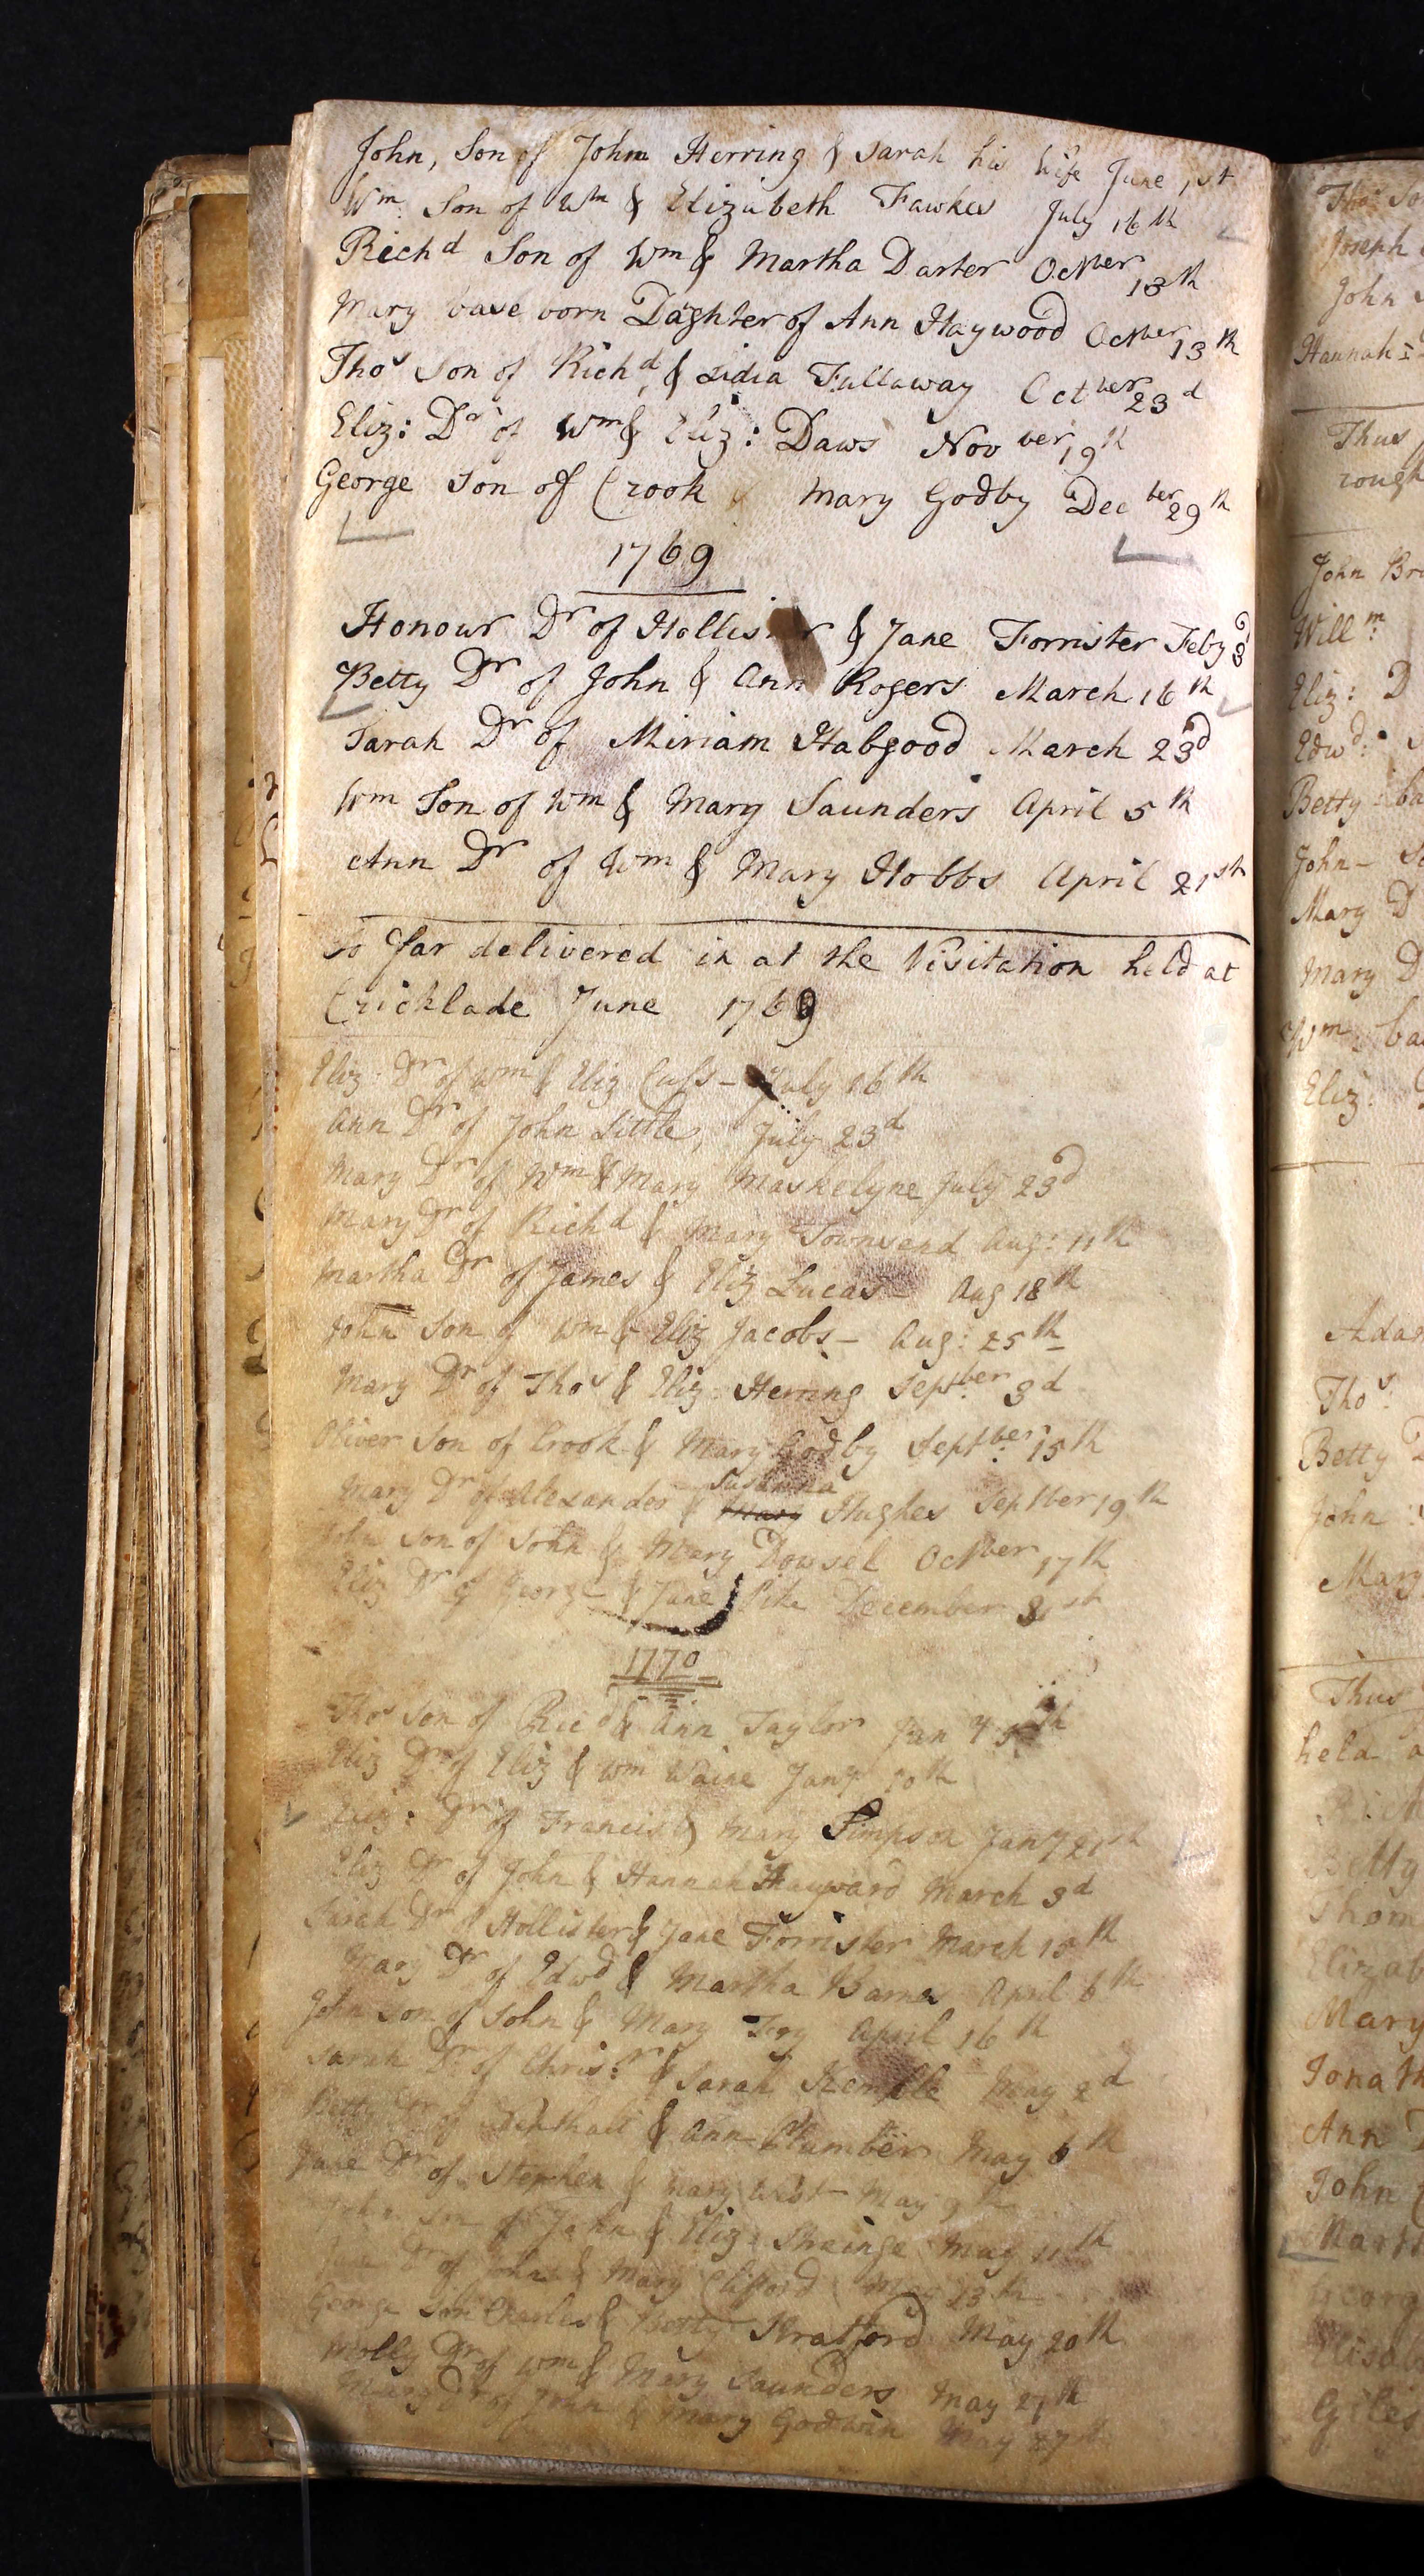 John, Son of John Herring & Sarah his Wife June 1st
Wm Son of Wm & Elizabeth Fawkes July 16th
Richd Son of Wm & Martha Darter Octber 13th
Mary base born Daghter of Ann Haywood Octber 13th
Thos Son of Richd & Lidia Fullaway Octber 23d
Eliz: Dr of Wm & Eliz: Daws Novber 19th
George Son of Crook & Mary Godby Decber 29th
1769
Honour Dr of Hollister & Jane Forrister Feby 3d
Betty Dr of John & Ann Rogers March 16th
Sarah Dr of Miriam Habgood March 23d
Wm Son of Wm & Mary Saunders April 5th
Ann Dr of Wm & Mary Hobbs April 21st
So far delivered in at the Visitation held at
Cricklade June 1769
Eliz: Dr of Wm & Eliz Cuss - July 16th
Ann Dr of John Little, July 23d
Mary Dr of Wm & Mary Maskelyne July 23d
Mary Dr of Richd & Mary Townsend Aug: 11th
Martha Dr of James & Eliz Lucas - Aug 18th
John Son of Wm & Eliz Jacobs - Aug: 25th
Mary Dr of Thos & Eliz: Herring Septber 3d
Oliver Son of Crook & Mary Godby Septber 15th
Mary Dr of Alexander & Susanna Mary Hughes Septber 19th
John Son of John & Mary Dowsel Octber 17th
Eliz Dr of George & Jane Pike December 31st
1770
Thos Son of Ricd & Ann Taylor Jany 5th
Eliz Dr of Eliz & Wm Waine Jany
Eliz: Dr of Francis & Mary Simpson Jany 21st
Eliz Dr of John & Hannah Hayward March 3d
Sarah Dr of Hollister & Jane Forrister March 15th
Mary Dr of Edwd & Martha Barnes April 6th
John Son of John & Mary April 16th
Sarah Dr of Chrisr & Sarah Kemble May 2d
Betty Dr of & Ann Plumber May 6th
Jane Dr of Stephen & Mary West May 9th
John Son of John & Eliz: Strainge May 11th
Dr of John & Mary Clifford May 13th
George Son Charles & Betty Stratford May 20th
Molly Dr of Wm & Mary Saunders May 27th
Mary Dr of John & Mary Godwin May 27th
Joseph
John
Hannah
Thus
rough
John
Willm
Eliz: D
Edwd:
Betty ba
John -
Mary D
Mary D
Wm ba
Eliz:
Thos
Betty
John
Mary
Thus
held
Betty
Thom
Elizab
Mary
Ann
John
Giles